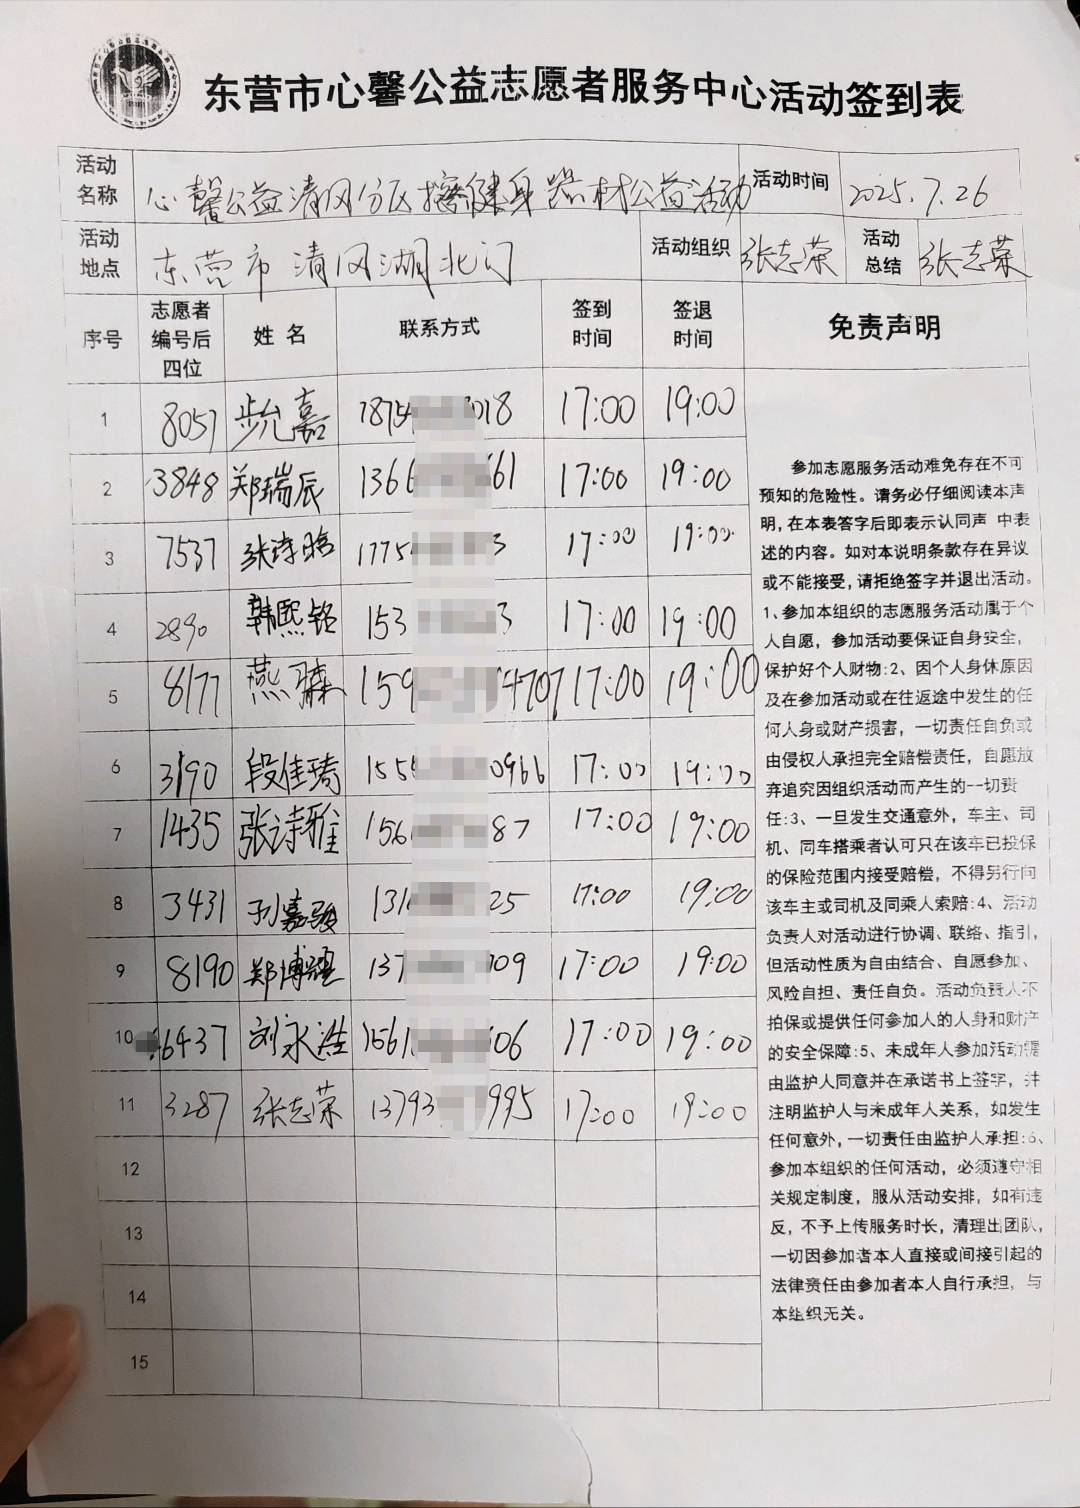 东营市心馨公益志愿者服务中心活动签到表
活动名称 心馨公益清风分区擦健身器材公益活动 活动时间 2025.7.26
活动地点 东营市清风湖北门 活动组织 张志荣 活动总结 张志荣
序号 志愿者编号后四位 姓名 联系方式 签到时间 签退时间 免责声明
1 8057 步允嘉 1875 018 17:00 19:00
2 3848 郑瑞辰 1366 61 17:00 19:00
3 7537 张诗晗 1775 3 17:00 19:00
4 2890 韩熙铭 153 3 17:00 19:00
5 8177 燕 159 4707 17:00 19:00
6 3190 段佳琦 1555 0966 17:00 19:00
7 1435 张诗雅 156 87 17:00 19:00
8 3431 孙嘉骏 131 25 17:00 19:00
9 8190 郑博 137 09 17:00 19:00
10 6437 刘永浩 1561 06 17:00 19:00
11 3287 张志荣 13793 995 17:00 19:00
12
13
14
15
参加志愿服务活动难免存在不可
预知的危险性。请务必仔细阅读本声
明,在本表答字后即表示认同声 中表
述的内容。如对本说明条款存在异议
或不能接受,请拒绝签字并退出活动。
1、参加本组织的志愿服务活动属于个
人自愿，参加活动要保证自身安全，
保护好个人财物:2、因个人身休原因
及在参加活动或在往返途中发生的任
何人身或财产损害，一切责任自负或
由侵权人承担完全赔偿责任，自愿放
弃追究因组织活动而产生的一切责
任:3、一旦发生交通意外，车主、司
机、同车搭乘者认可只在该车已投保
的保险范围内接受赔偿，不得另行向
该车主或司机及同乘人索赔:4、活动
负责人对活动进行协调、联络、指引，
但活动性质为自由结合、自愿参加、
风险自担、责任自负。活动负责人不
拍保或提供任何参加人的人身和财产
的安全保障:5、未成年人参加活动需
由监护人同意并在承诺书上签字，并
注明监护人与未成年人关系，如发生
任何意外，一切责任由监护人承担:6、
参加本组织的任何活动，必须遵守相
关规定制度，服从活动安排，如有违
反，不予上传服务时长，清理出团队，
一切因参加者本人直接或间接引起的
法律责任由参加者本人自行承担，与
本组织无关。